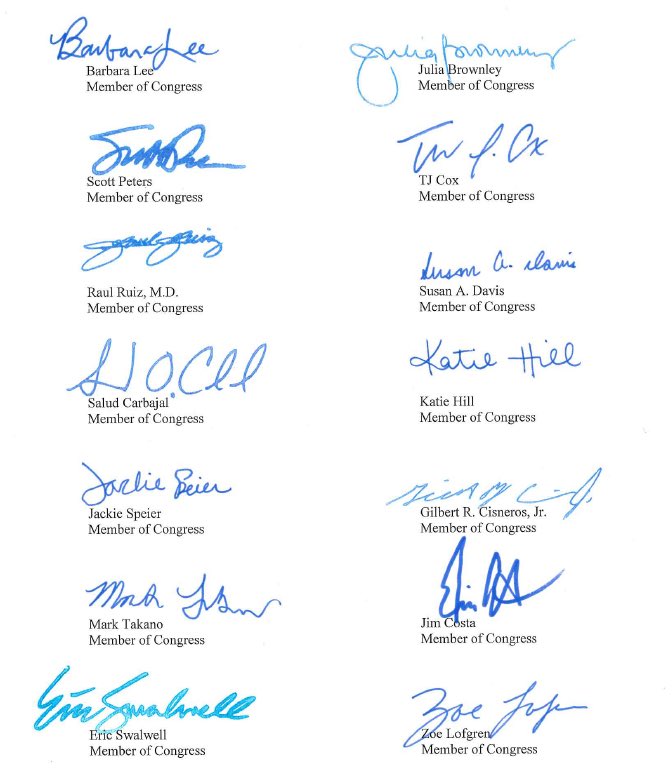 Barbara Lee
Julia Brownley
Barbara Lee
Julia Brownley
Member of Congress
Member of Congress
Scott Peters
TJ Cox
Member of Congress
Member of Congress
Susan A. Davis
Raul Ruiz, M.D.
Susan A. Davis
Member of Congress
Member of Congress
Katie Hill
Salud Carbajal
Katie Hill
Member of Congress
Member of Congress
Jackie Speier
Jackie Speier
Gilbert R. Cisneros, Jr.
Member of Congress
Member of Congress
Mark Takano
Mark Takano
Jim Costa
Member of Congress
Member of Congress
Eric Swalwell
Zoe Lofgren
Eric Swalwell
Zoe Lofgren
Member of Congress
Member of Congress